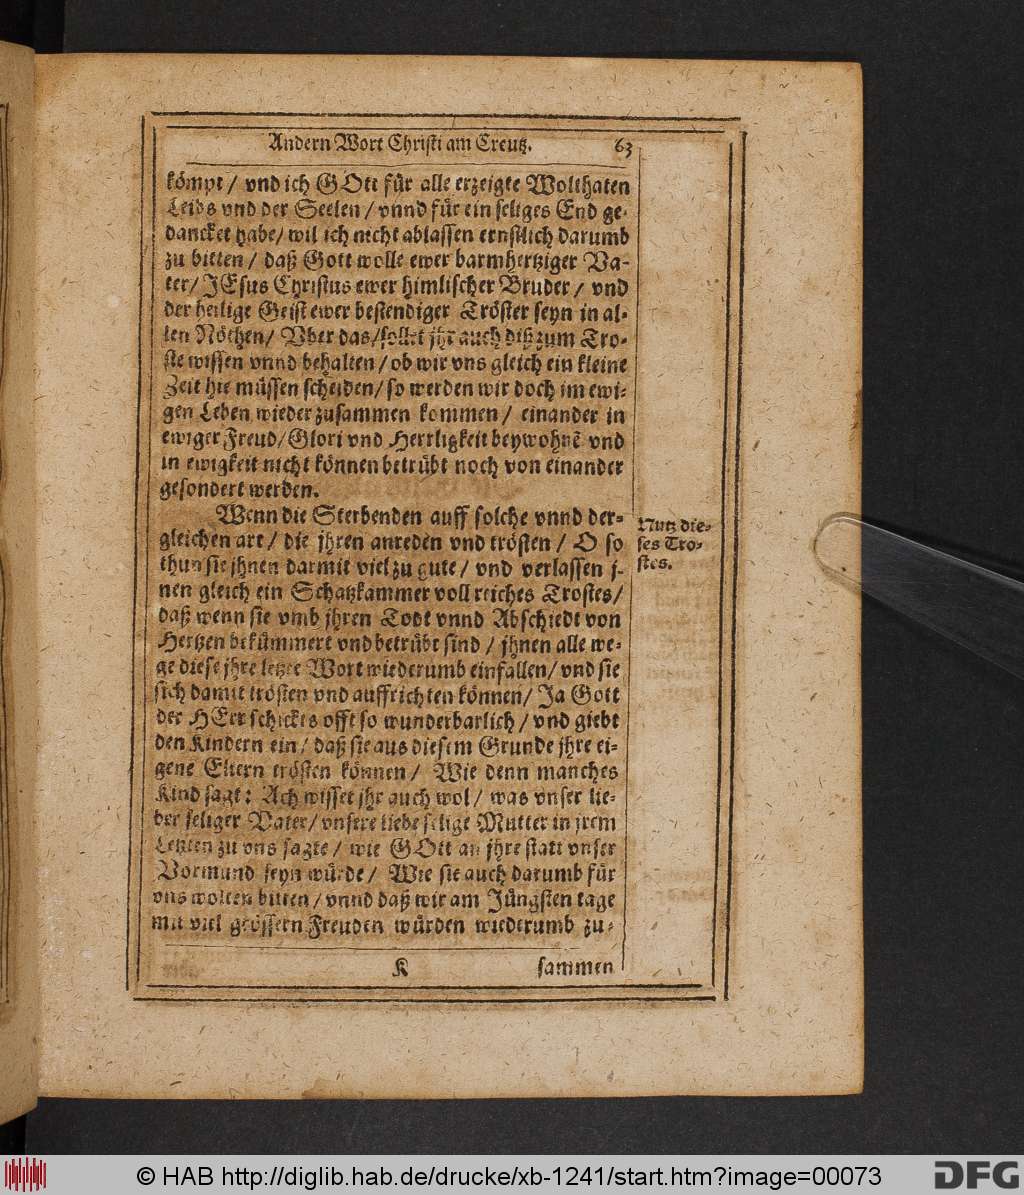 Andern Wort Christi am Creutz. 63
kömpt / vnd ich GOtt für alle erzeigte Wolthaten
Leibs vnd der Seelen / vnnd für ein seliges End ge-
dancket habe / wil ich nicht ablassen ernstlich darumb
zu bitten / daß Gott wolle ewer barmhertziger Va-
ter / JEsus Christus ewer himlischer Bruder / vnd
der heilige Geist ewer bestendiger Tröster seyn in al-
len Nöthen / Vber das / sollet jhr auch diß zum Tro-
ste wissen vnnd behalten / ob wir vns gleich ein kleine
Zeit hie müssen scheiden / so werden wir doch im ewi-
gen Leben wieder zusammen kommen / einander in
ewiger Freud / Glori vnd Herrligkeit beywohnẽ vnd
in ewigkeit nicht können betrübt noch von einander
gesondert werden.
Wenn die Sterbenden auff solche vnnd der-
gleichen art / die jhren anreden vnd trösten / O so
thun sie jhnen darmit viel zu gute / vnd verlassen j-
nen gleich ein Schatzkammer voll reiches Trostes /
daß wenn sie vmb jhren Todt vnnd Abschiedt von
Hertzen bekümmert vnd betrübt sind / jhnen alle we-
ge diese jhre letzte Wort wiederumb einfallen / vnd sie
sich damit trösten vnd auffrichten können / Ja Gott
der HErr schickts offt so wunderbarlich / vnd giebt
den Kindern ein / daß sie aus diesem Grunde jhre ei-
gene Eltern trösten können / Wie denn manches
Kind sagt : Ach wisset jhr auch wol / was vnser lie-
ber seliger Vater / vnsere liebe selige Mutter in jrem
Letzten zu vns sagte / wie GOtt an jhre statt vnser
Vormund seyn würde / Wie sie auch darumb für
vns wolten bitten / vnnd daß wir am Jüngsten tage
mit viel grössern Freuden würden wiederumb zu-
K sammen
Nutz die-
ses Tro-
stes.
© HAB http://diglib.hab.de/drucke/xb-1241/start.htm?image=00073
DFG